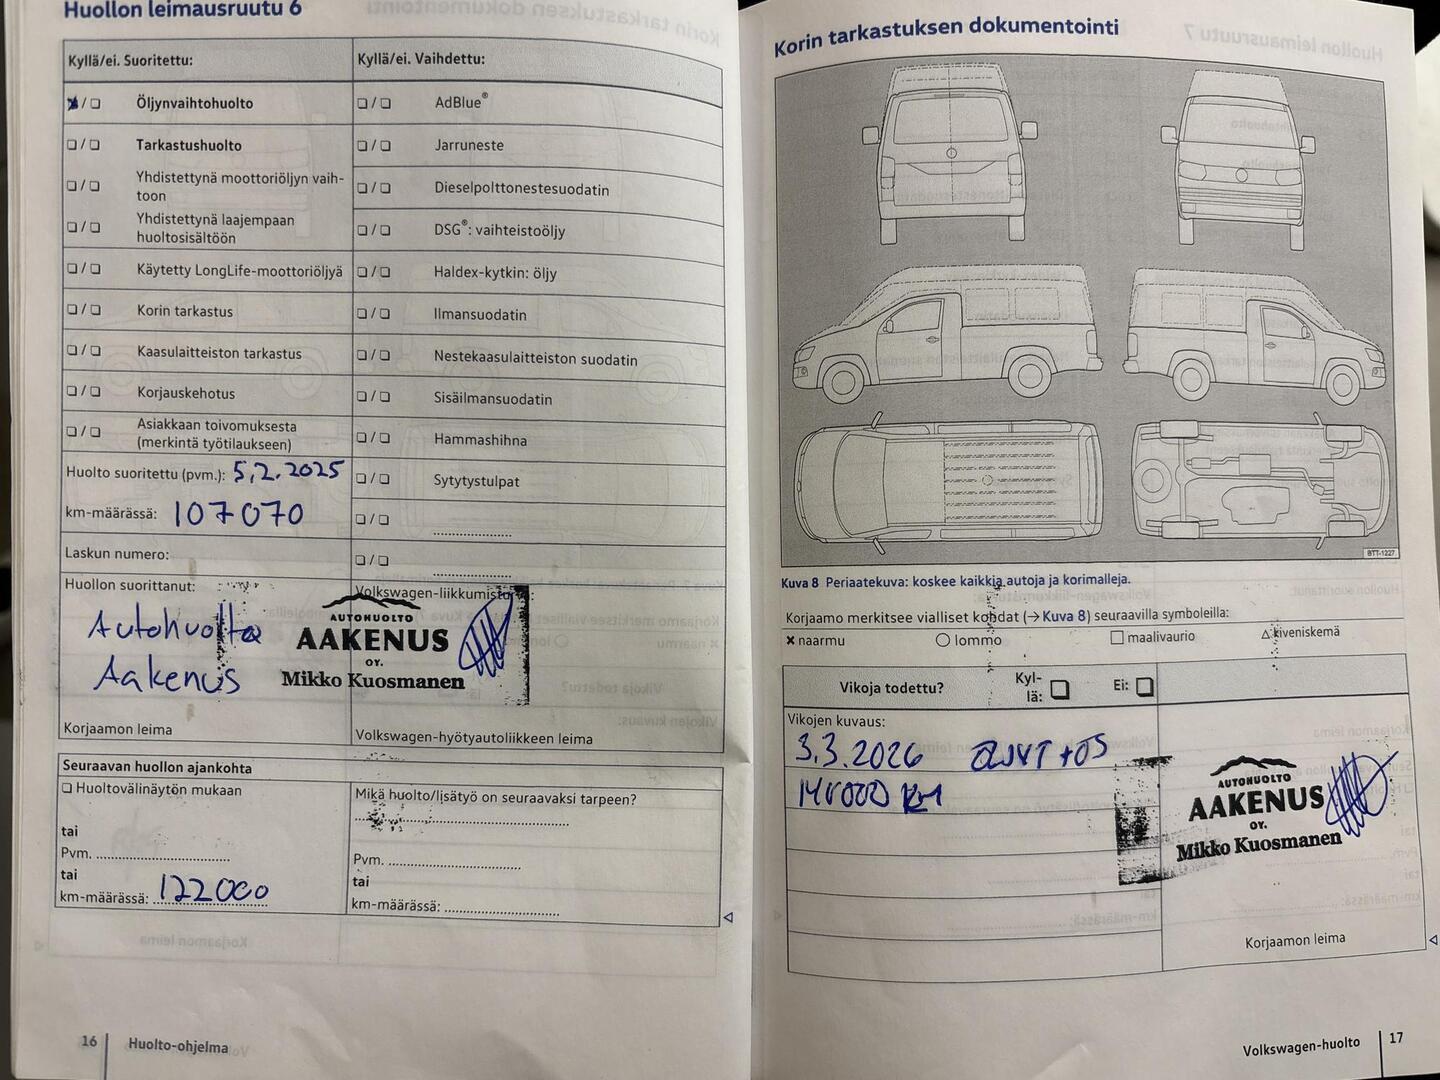 Huollon leimausruutu 6
Kyllä/ei. Suoritettu:
Kyllä/ei. Vaihdettu:
Öljynvaihtohuolto
AdBlue®
Tarkastushuolto
Jarruneste
Yhdistettynä moottoriöljyn vaih-
toon
Dieselpolttonestesuodatin
Yhdistettynä laajempaan
huoltosisältöön
DSG®: vaihteistoöljy
Käytetty LongLife-moottoriöljyä
Haldex-kytkin: öljy
Korin tarkastus
Ilmansuodatin
Kaasulaitteiston tarkastus
Nestekaasulaitteiston suodatin
Korjauskehotus
Sisäilmansuodatin
Asiakkaan toivomuksesta
(merkintä työtilaukseen)
Hammashihna
Huolto suoritettu (pvm.): 5.2.2025
Sytytystulpat
km-määrässä: 107070
Laskun numero:
Huollon suorittanut:
Autohuolto
Aakenus
Korjaamon leima
AUTOHUOLTO
AAKENUS
OY.
Mikko Kuosmanen
Volkswagen-hyötyautoliikkeen leima
Seuraavan huollon ajankohta
Huoltovälinäytön mukaan
tai
Pvm.
tai
km-määrässä: 122000
Mikä huolto/lisätyö on seuraavaksi tarpeen?
Pvm.
tai
km-määrässä:
16 Huolto-ohjelma
Korin tarkastuksen dokumentointi
BTT-1227
Kuva 8 Periaatekuva: koskee kaikkia autoja ja korimalleja.
Korjaamo merkitsee vialliset kohdat (→ Kuva 8) seuraavilla symboleilla:
naarmu lommo maalivaurio kiveniskemä
Vikoja todettu?
Kyl-
lä:
Ei:
Vikojen kuvaus:
3.3.2026
KM
AUTOHUOLTO
AAKENUS
OY.
Mikko Kuosmanen
Korjaamon leima
Volkswagen-huolto 17